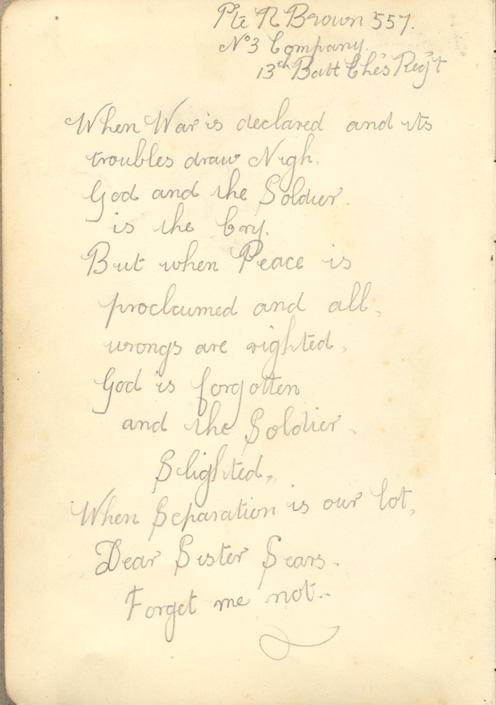 Pte R Brown 557.
No 3 Company.
13th Batt Ches Reg't
When War is declared and its
troubles draw Nigh.
God and the Soldier.
is the Cry.
But when Peace is
proclaimed and all,
wrongs are righted,
God is forgotten
and the Soldier.
Slighted,
When Separation is our lot,
Dear Sister Sears.
Forget me not..